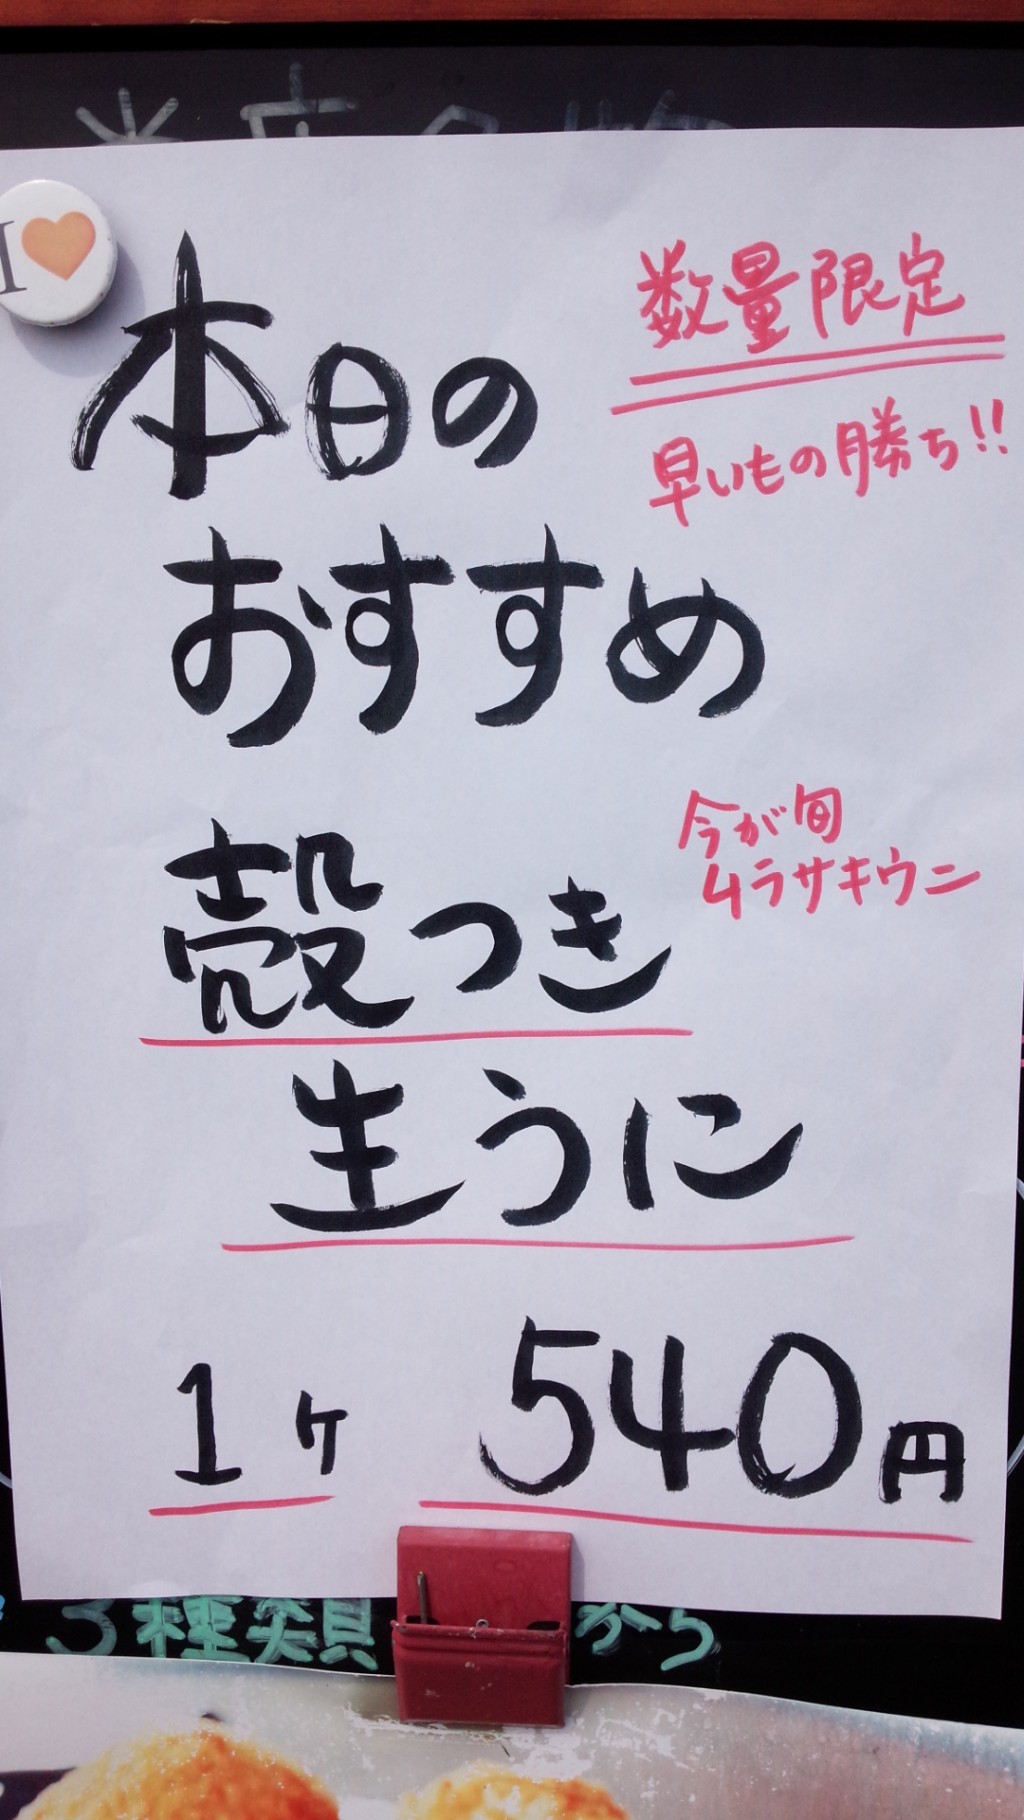 I
数量限定
早いもの勝ち!!
本日の
おすすめ
今が旬
ムラサキウニ
殻つき
生うに
1ヶ 540円
3種類
から